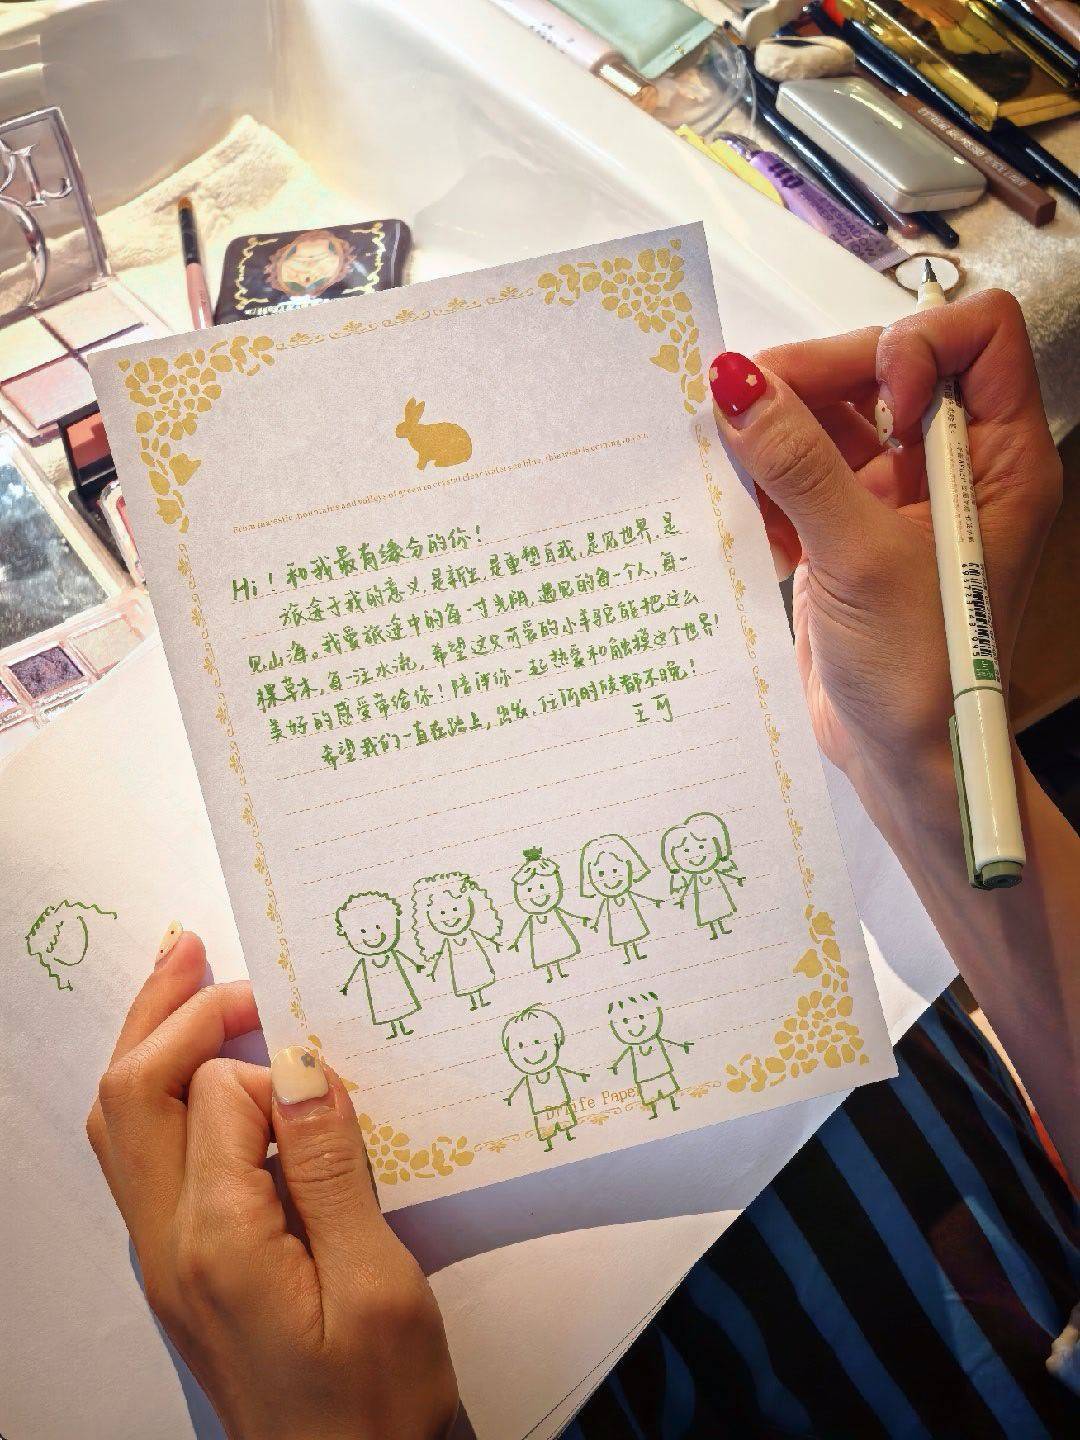 From majestic mountains and valleys of green to crystal clear waters so blue, this wish is coming to you
Hi！和我最有缘分的你！
旅途于我的意义，是新生，是重塑自我，是见世界，是
见山海。我爱旅途中的每一寸光阴，遇见的每一个人，每一
棵草木，每一注水流，希望这只可爱的小羊驼能把这么
美好的感受带给你！陪伴你一起热爱和触摸这个世界！
希望我们一直在路上，出发，任何时候都不晚！
王可
Drlife Paper